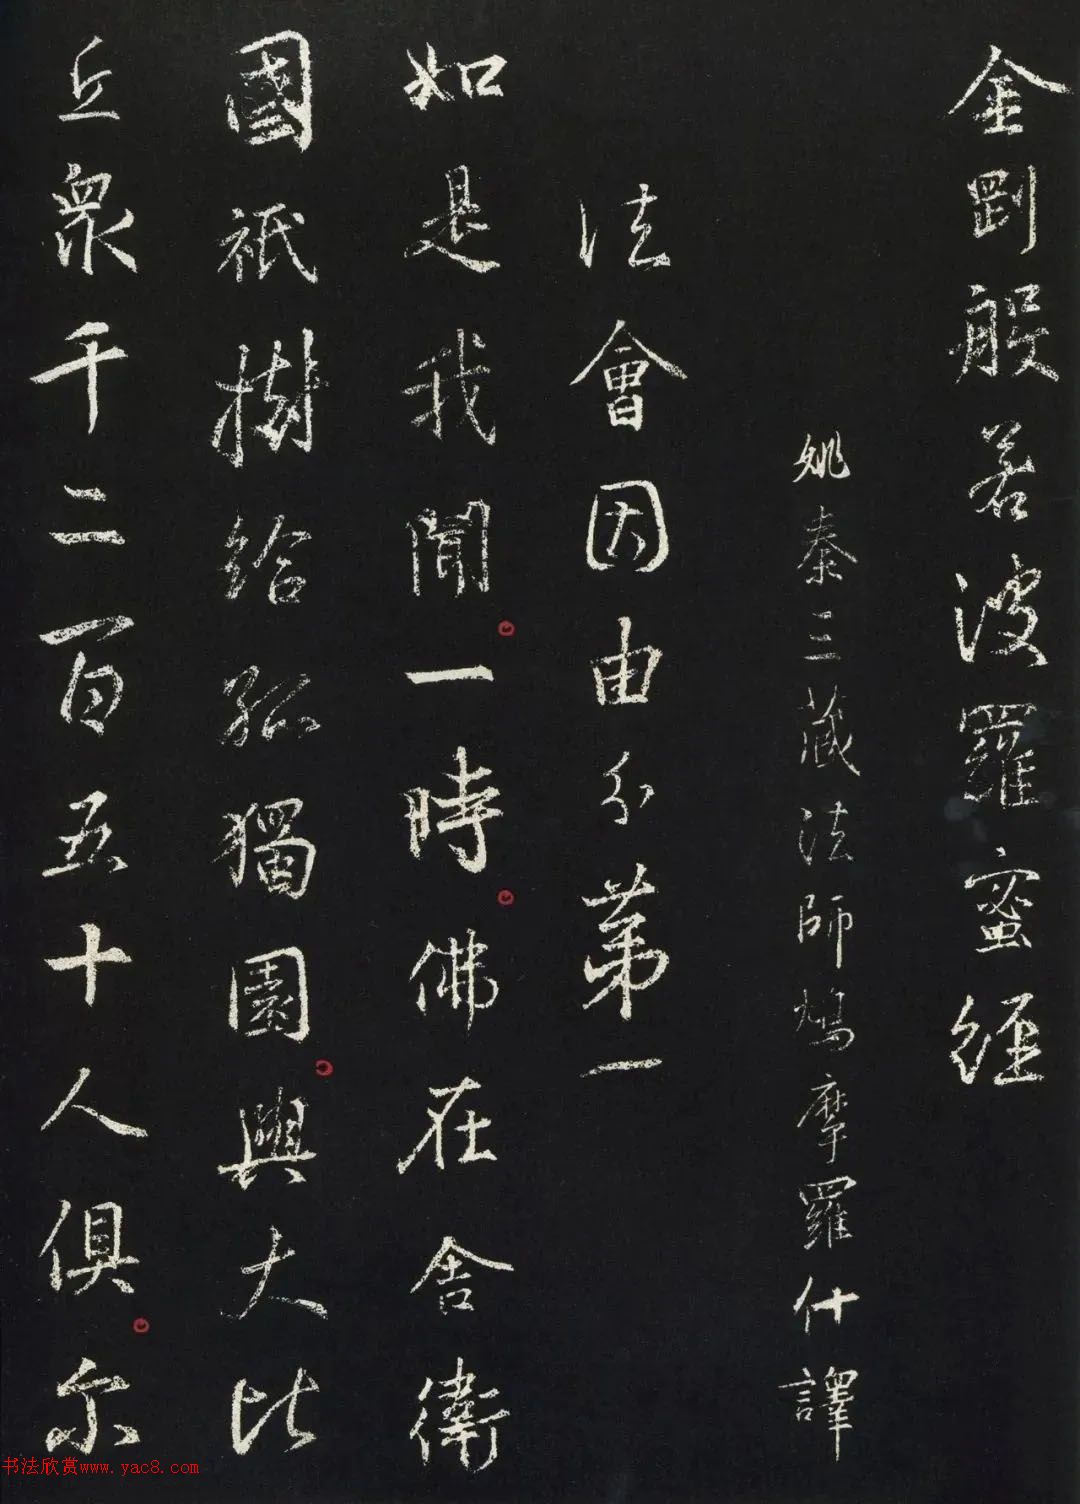 金剛般若波羅蜜經
姚秦三藏法師鳩摩羅什譯
法會因由分第一
如是我聞。一時。佛在舍衛
國祇樹給孤獨園。與大比
丘眾千二百五十人俱。尔
书法欣赏www.yac8.com